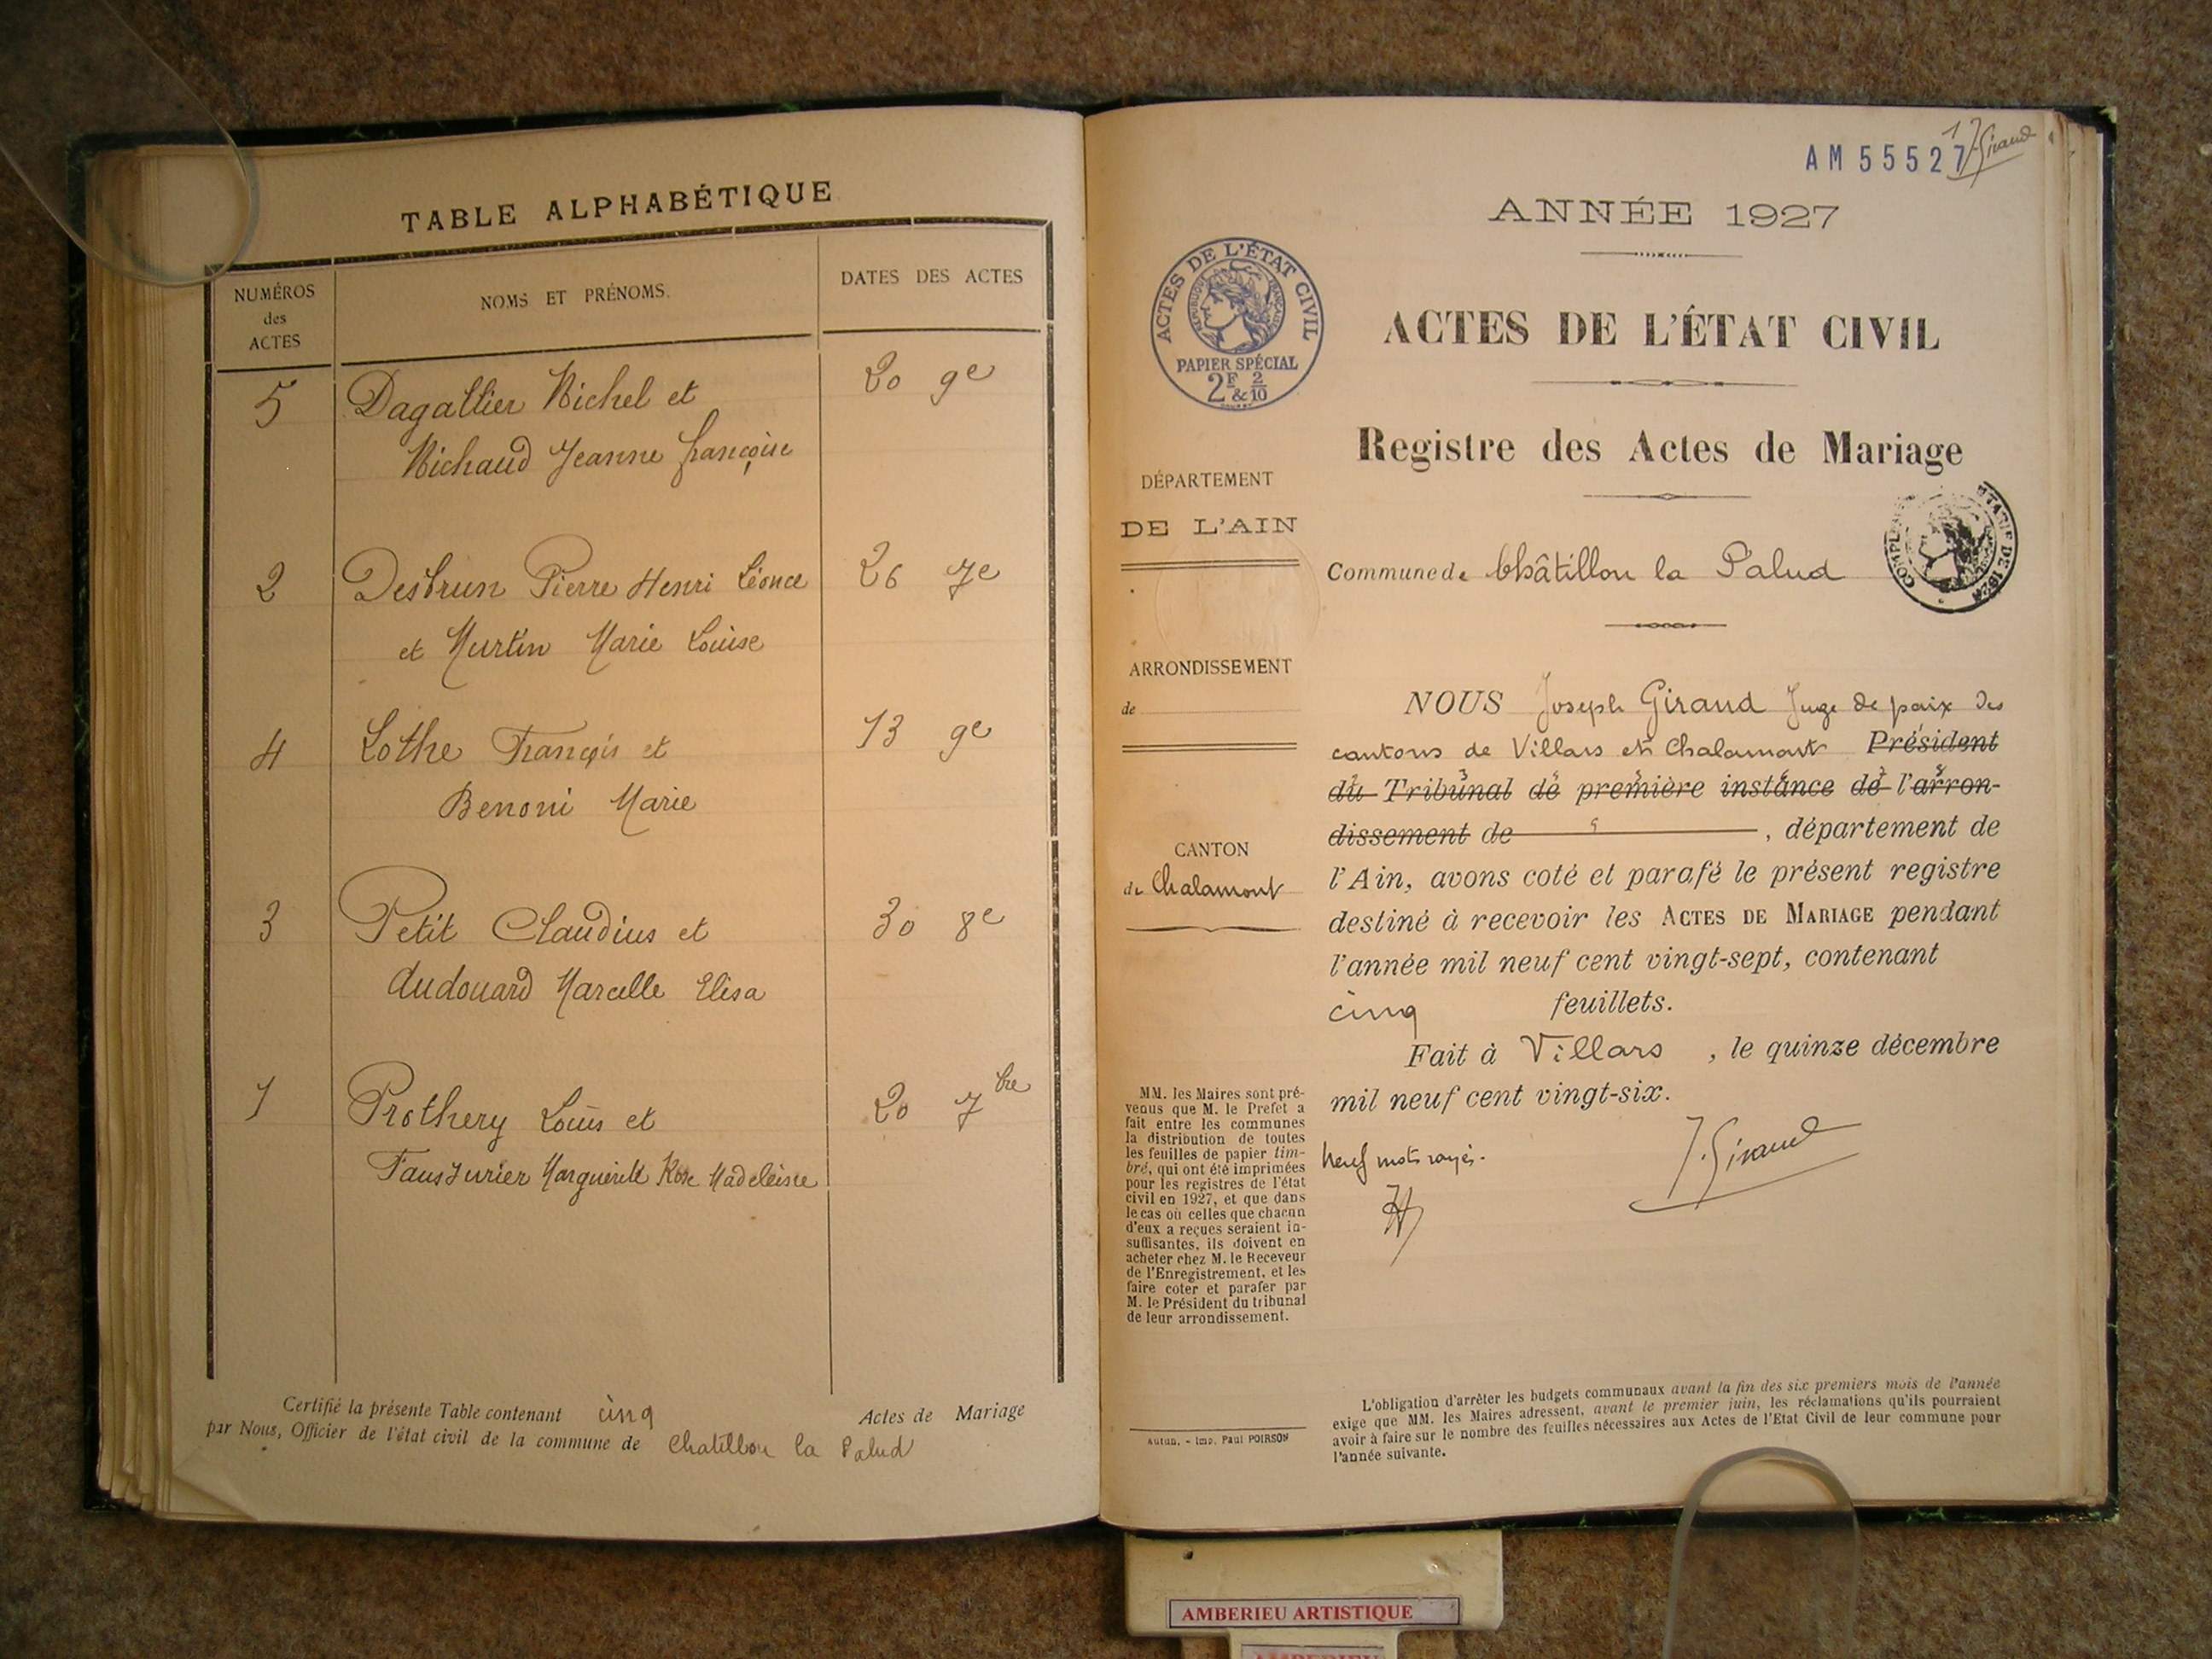 TABLE ALPHABÉTIQUE
NUMÉROS
des
ACTES
NOMS ET PRÉNOMS.
DATES DES ACTES
5 Dagallier Michel et 20 9e
Michaud Jeanne françoise
2 Desbrun Pierre Henri Léonce 26 7e
et Murtin Marie Louise
4 Lothe François et 13 9e
Benoni Marie
3 Petit Claudius et 30 8e
Audouard Marcelle Elisa
1 Prothery Louis et 20 7bre
Fausturier Marguerite Rose Madeleine
Certifié la présente Table contenant cinq Actes de Mariage
par Nous, Officier de l'état civil de la commune de Chatillon la Palud
AM 55527
1 J. Giraud
ANNÉE 1927
ACTES DE L'ÉTAT CIVIL
RÉPUBLIQUE FRANÇAISE
PAPIER SPÉCIAL
2F & 2/10
ACTES DE L'ÉTAT CIVIL
Registre des Actes de Mariage
DÉPARTEMENT
DE L'AIN
Commune de Châtillon la Palud
ARRONDISSEMENT
de
CANTON
de Chalamont
NOUS Joseph Giraud Juge de paix des
cantons de Villars et Chalamont Président
du Tribunal de première instance de l'arron-
dissement de , département de
l'Ain, avons coté et parafé le présent registre
destiné à recevoir les ACTES DE MARIAGE pendant
l'année mil neuf cent vingt-sept, contenant
cinq feuillets.
Fait à Villars , le quinze décembre
mil neuf cent vingt-six.
Neuf mots rayés.
J. Giraud
MM. les Maires sont pré-
venus que M. le Prefet a
fait entre les communes
la distribution de toutes
les feuilles de papier tim-
bré, qui ont été imprimées
pour les registres de l'état
civil en 1927, et que dans
le cas où celles que chacun
d'eux a reçues seraient in-
suffisantes, ils doivent en
acheter chez M. le Receveur
de l'Enregistrement, et les
faire coter et parafer par
M. le Président du tribunal
de leur arrondissement.
Autun. - Imp. Paul POIRSON
L'obligation d'arrêter les budgets communaux avant la fin des six premiers mois de l'année
exige que MM. les Maires adressent, avant le premier juin, les réclamations qu'ils pourraient
avoir à faire sur le nombre des feuilles nécessaires aux Actes de l'Etat Civil de leur commune pour
l'année suivante.
AMBERIEU ARTISTIQUE
AMBERIEU